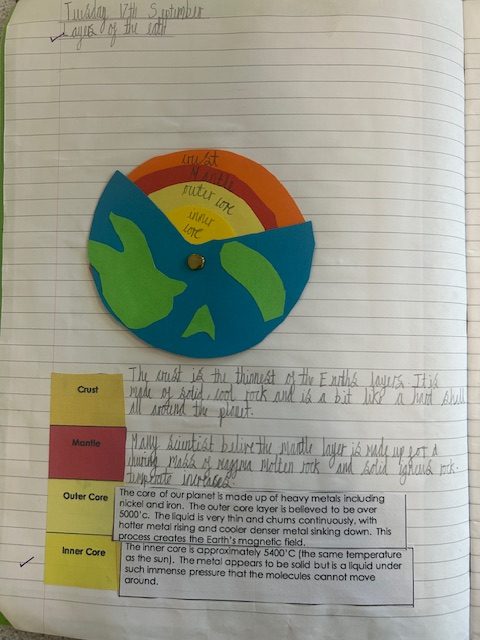 Tuesday 17th September
Layers of the eath
crust
Mantle
outer core
inner
core
Crust
The crust is the thinnest of the Earths layers. It is
made of solid cool rock and is a bit like a hard shell
all around the planet.
Mantle
Many scientist belive the mantle layer is made up for a
mass of magma molten rock and solid rock.
Outer Core
The core of our planet is made up of heavy metals including
nickel and iron. The outer core layer is believed to be over
5000'c. The liquid is very thin and churns continuously, with
hotter metal rising and cooler denser metal sinking down. This
process creates the Earth's magnetic field.
Inner Core
The inner core is approximately 5400'C (the same temperature
as the sun). The metal appears to be solid but is a liquid under
such immense pressure that the molecules cannot move
around.